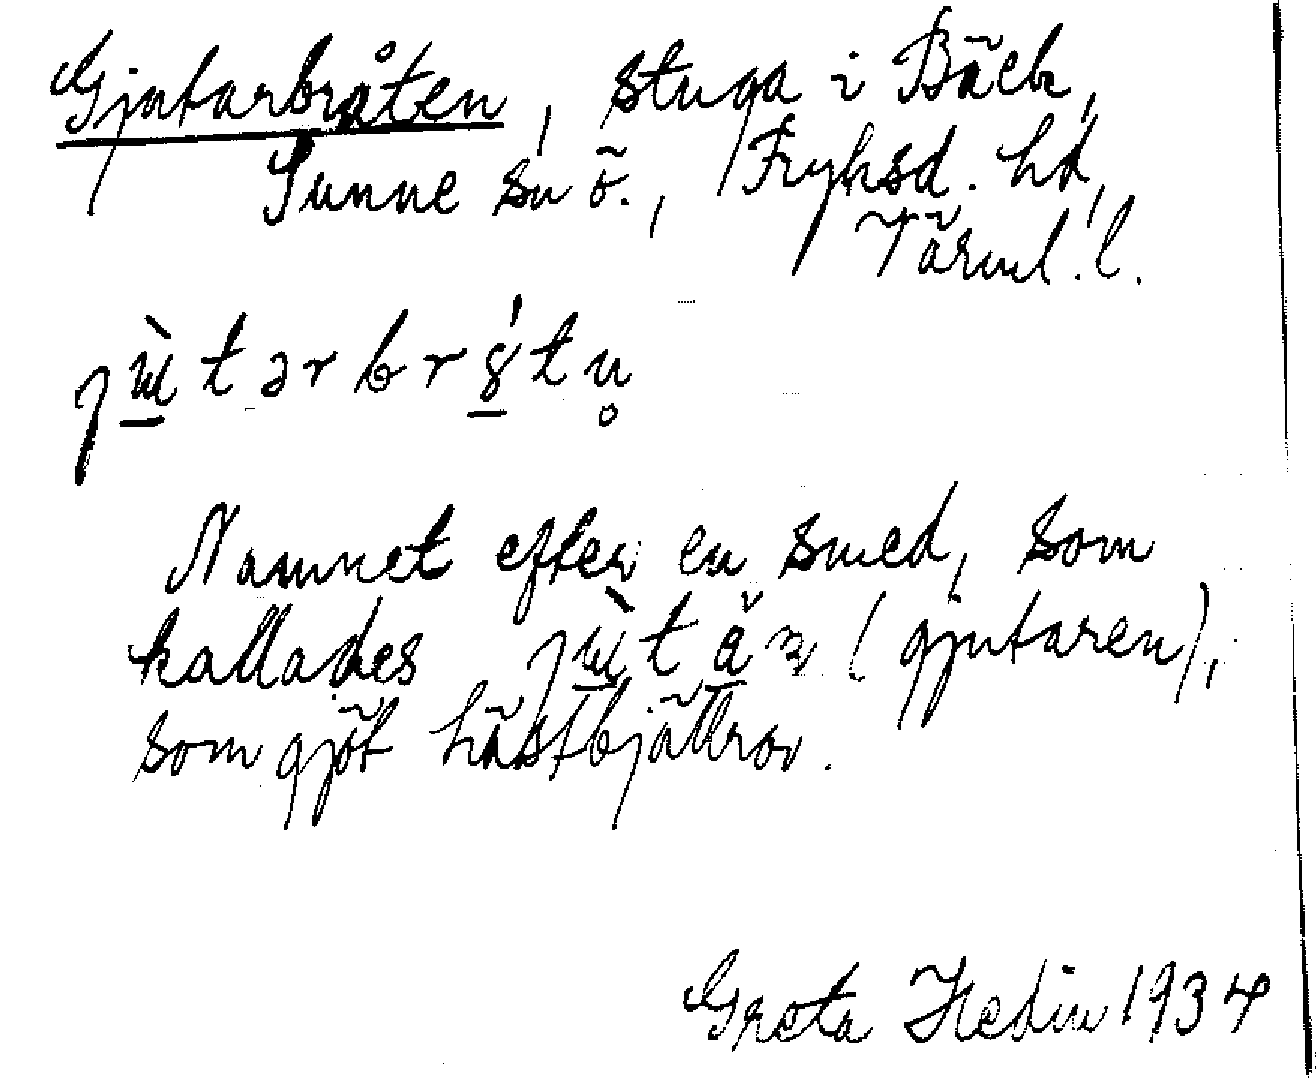 Gjutarbråten, stuga i Bäck,
Sunne sn ö., Fryksd. hd,
Värml. l.
jɯ̀tərbrɣ́tn̥
Namnet efter en smed, som
kallades (gjutaren),
som gjöt hästbjällror.
Greta Hedin 1934